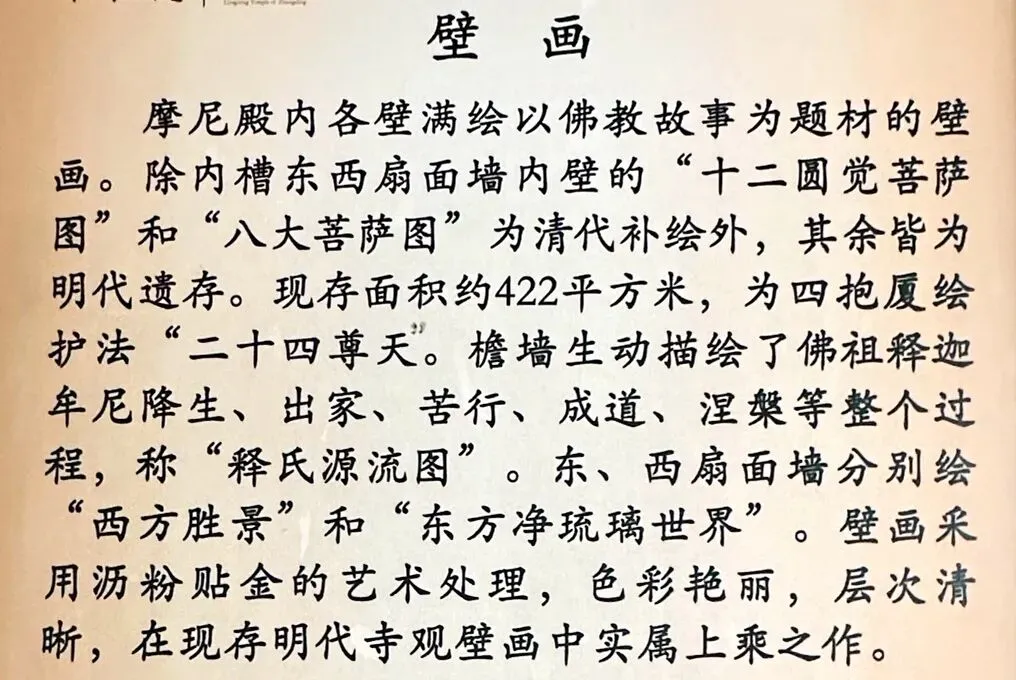 壁 画
摩尼殿内各壁满绘以佛教故事为题材的壁
画。除内槽东西扇面墙内壁的“十二圆觉菩萨
图”和“八大菩萨图”为清代补绘外，其余皆为
明代遗存。现存面积约422平方米，为四抱厦绘
护法“二十四尊天”。檐墙生动描绘了佛祖释迦
牟尼降生、出家、苦行、成道、涅槃等整个过
程，称“释氏源流图”。东、西扇面墙分别绘
“西方胜景”和“东方净琉璃世界”。壁画采
用沥粉贴金的艺术处理，色彩艳丽，层次清
晰，在现存明代寺观壁画中实属上乘之作。